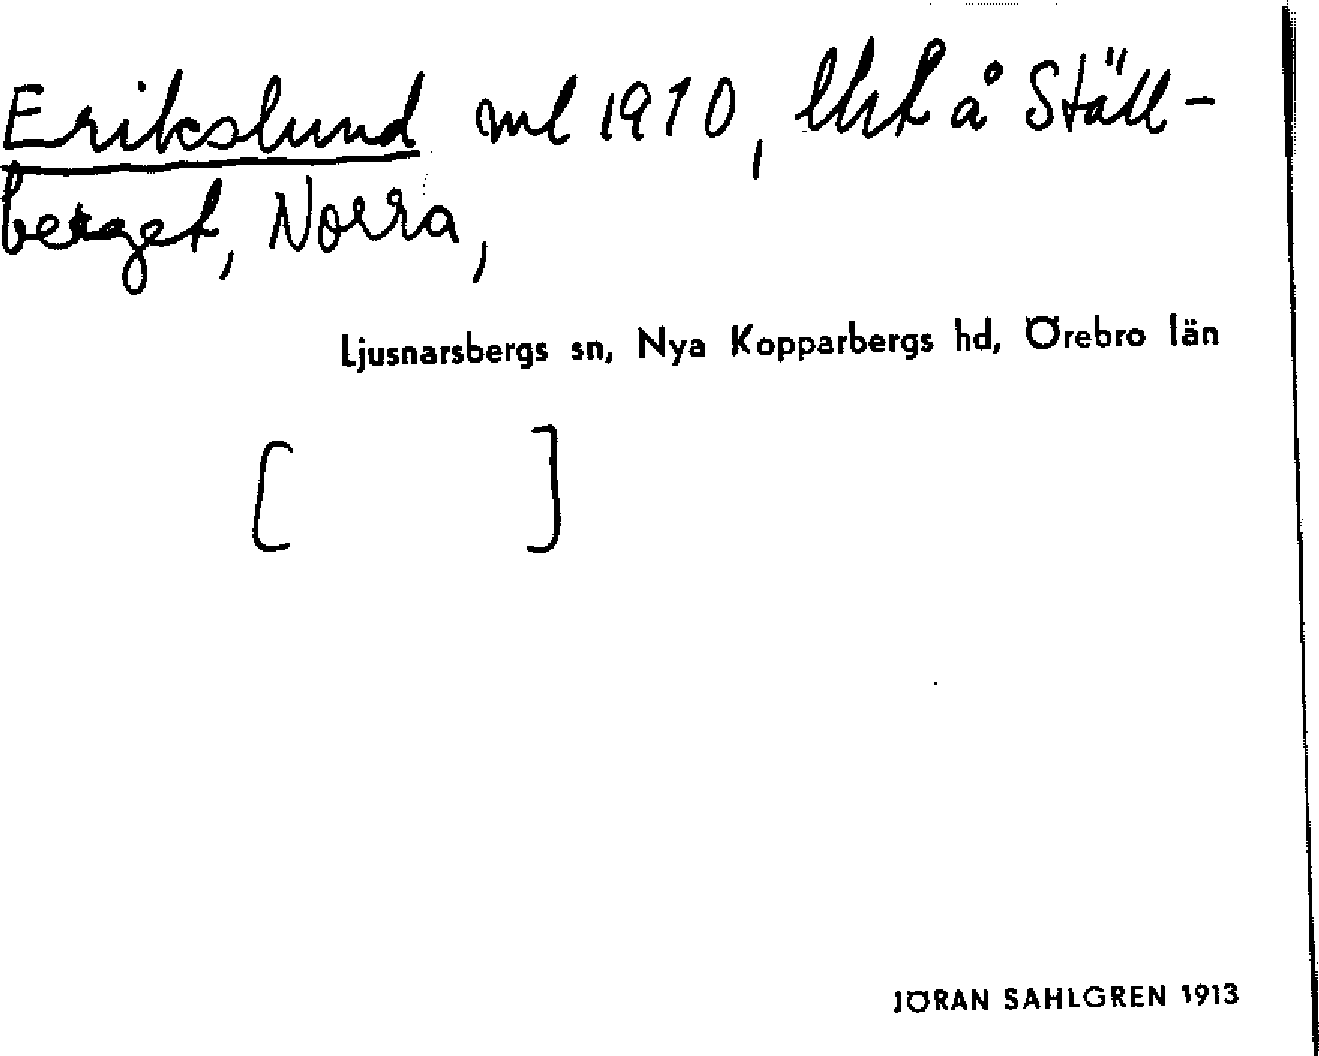 Erikslund ml 1910, lht å Ställ-
berget, Norra,
Ljusnarsbergs sn, Nya Kopparbergs hd, Örebro län
[ ]
JÖRAN SAHLGREN 1913